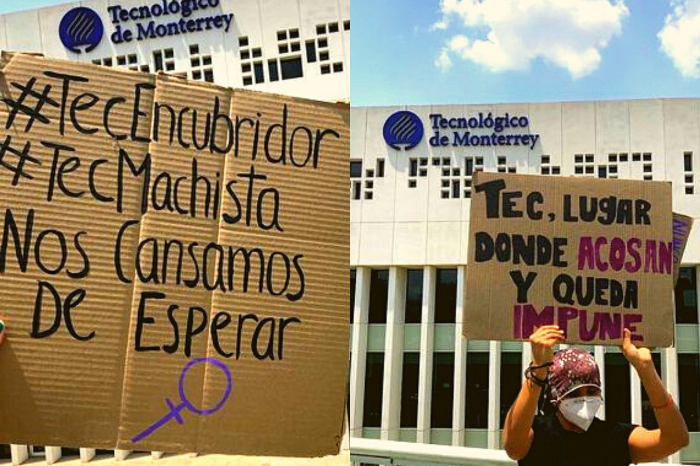 Tecnológico
de Monterrey
#TecEncubridor
#TecMachista
Nos Cansamos
De Esperar
Tecnológico
de Monterrey
TEC, LUGAR
DONDE ACOSAN
Y QUEDA
IMPUNE